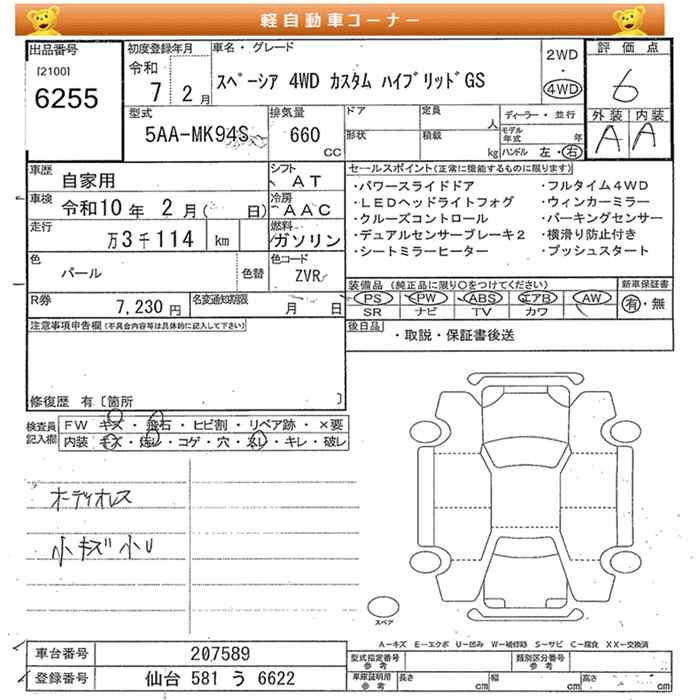 軽自動車コーナー
出品番号
[2100]
6255
初度登録年月
令和
7 2月
車名・グレード
スペーシア 4WD カスタム ハイブリッドGS
2WD
・
4WD
評価点
6
外装 内装
A A
型式
5AA-MK94S
排気量
660
CC
ドア
形状
定員
人
積載
kg
ディーラー・並行
モデル年式 年
ハンドル 左・右
車歴
自家用
シフト
AT
車検
令和10年 2月( 日)
冷房
AAC
走行
万3千114 km
燃料
ガソリン
色
パール
色替
色コード
ZVR
R券
7,230円
名変通知期限
月 日
セールスポイント(正常に機能するものに限ります)
・パワースライドドア ・フルタイム4WD
・LEDヘッドライトフォグ ・ウィンカーミラー
・クルーズコントロール ・パーキングセンサー
・デュアルセンサーブレーキ2 ・横滑り防止付き
・シートミラーヒーター ・プッシュスタート
装備品(純正品に限り○をつけてください)
PS PW ABS エアB AW
SR ナビ TV カワ
新車保証書
有・無
後日品
・取説・保証書後送
注意事項申告欄(不具合内容等は具体的に記入して下さい)
修復歴 有〔箇所 〕
検査員
記入欄
FW キズ・飛石・ヒビ割・リペア跡・×要
内装 キズ・汚レ・コゲ・穴・スレ・キレ・破レ
オーディオレス
小キズ小U
スペア
A−キズ E−エクボ U−凹み W−補修跡 S−サビ C−腐食 XX−交換済
車台番号
207589
登録番号
仙台 581 う 6622
型式指定番号
参考
類別区分番号
参考
車庫証明用
参考
長さ cm
幅 cm
高さ cm